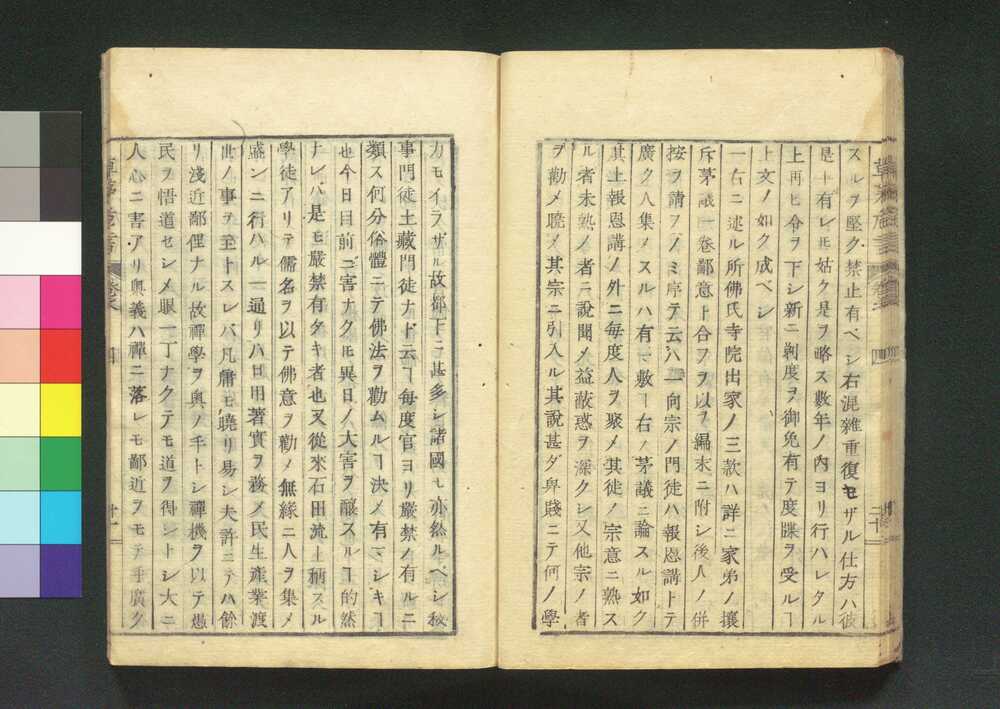 スルヿヲ堅ク禁止有ベシ右混雜重復セザル仕方ハ彼
是十有レ𪜈姑ク是ヲ略ス數年ノ内ヨリ行ハレタル
上再ヒ令ヲ下シ新ニ剃度ヲ御免有テ度牒ヲ受ルヿ
上文ノ如ク成ベシ
一右ニ逑ル所佛氏寺院出家ノ三款ハ詳ニ家弟ノ攘
斥茅議一卷鄙意ト合フヲ以ヲ編末ニ附シ後人ノ併
按ヲ請フノミ序テ云ハ一向宗ノ門徒ハ報恩講トテ
廣ク人集メスルハ有マ敷ヿ右ノ茅議ニ論スル如ク
其上報恩講ノ外ニ毎度人ヲ聚メ其徒ノ宗意ニ熟ス
ル者未熟ノ者ニ說聞メ益蔽惑ヲ深クシ又他宗ノ者
ヲ勸メ曉メ其宗ニ引入ル其說甚ダ卑賤ニテ何ノ學
力モイラズザル故都下ニ甚多シ諸國モ亦然ルベシ秘
事門徒土藏門徒ナト云ヿ毎度官ヨリ嚴禁ノ有ルニ
類ス何分俗體ニテ佛法ヲ勸ムルヿ決メ有マシキヿ
也今日目前ニ害ナク𪜈異日ノ大害ヲ釀スルヿ的然
ナレハ是モ嚴禁有タキ者也又從來石田流ト稱スル
學徒アリテ儒名ヲ以テ佛意ヲ勸メ無緣ニ人ヲ集メ
盛ンニ行ハル一通リハ日用著實ヲ務メ民生產業渡
世ノ事ヲ主トスレバ凡庸モ曉リ易シ夫許ニテハ餘
リ淺近鄙俚ナル故禪學ヲ奧ノ手トシ禪機ヲ以テ愚
民ヲ悟道セシメ眼一丁ナクテモ道ヲ得シトシ大ニ
人心ニ害アリ奧義ハ禪ニ落レモ鄙近ヲモテ手廣ク